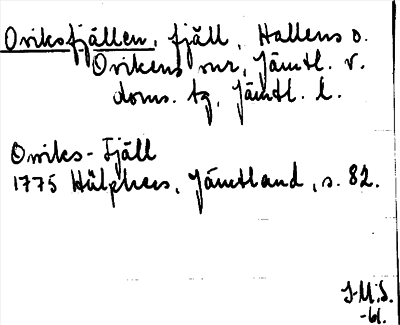 Oviksfjällen, fjäll, Hallens o.
Ovikens snr, Jämtl. v.
doms. tg, Jämtl. l.
Oviks-Fjäll
1775 Hülphers, Jämtland, s. 82.
J.M.S.
-61.